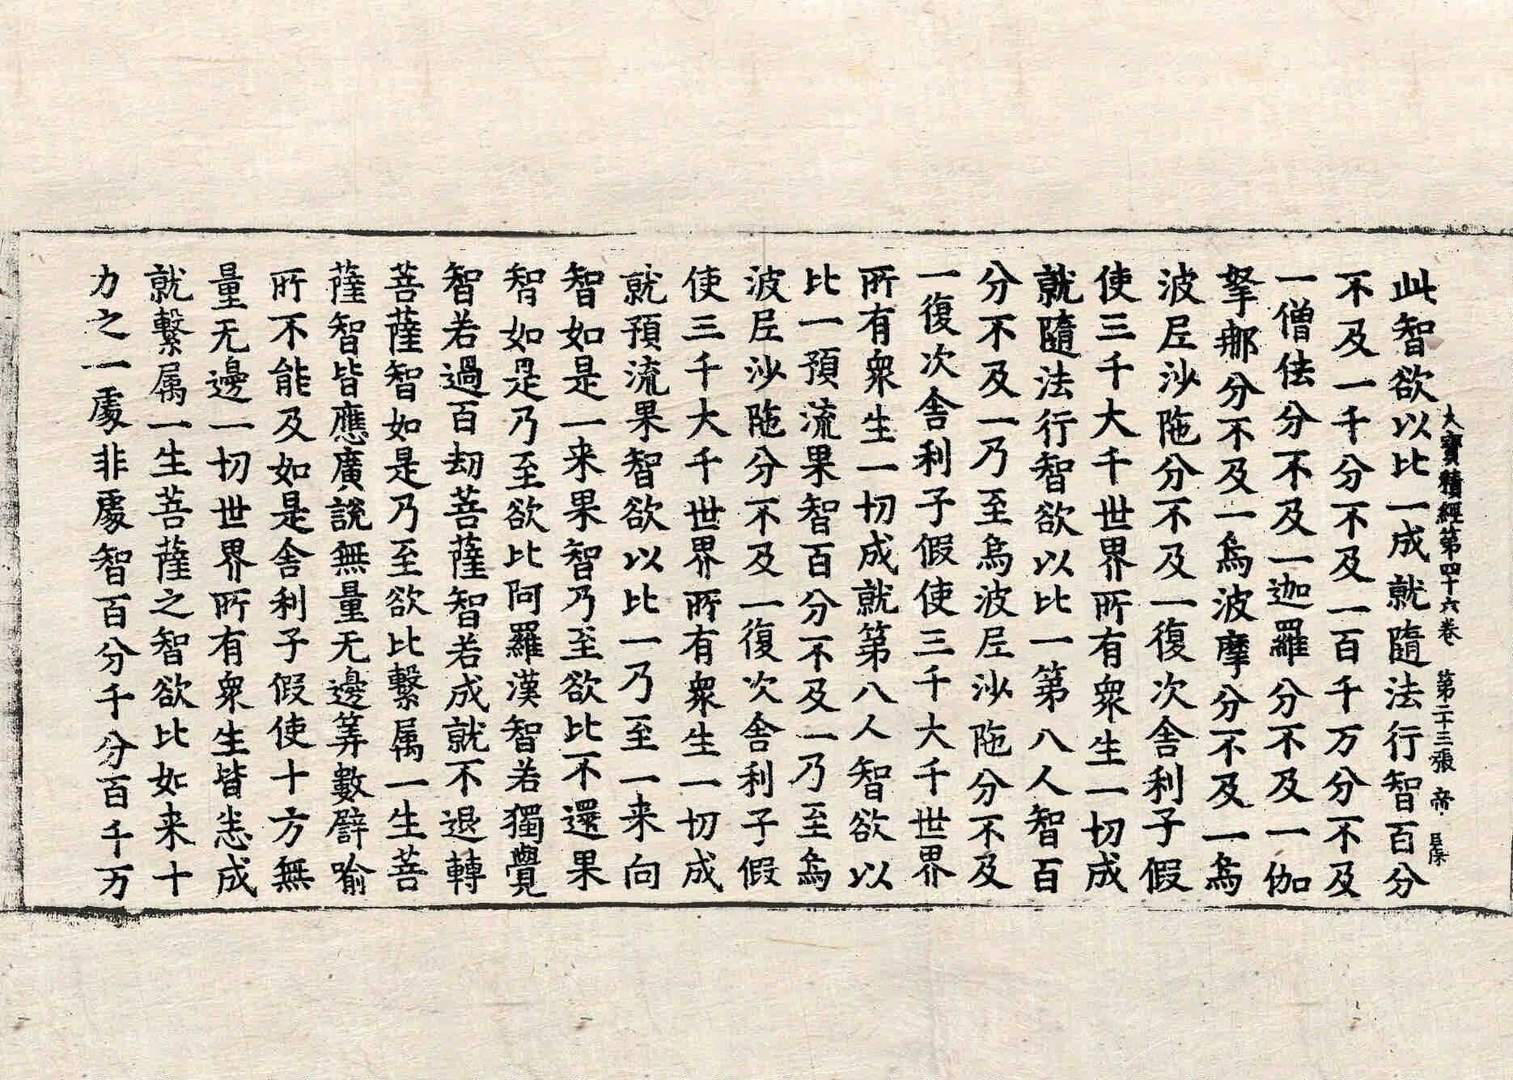 大寶積經第四十六卷 第二十三張 帝
此智欲以比一成就隨法行智百分
不及一千分不及一百千万分不及
一僧佉分不及一迦羅分不及一伽
拏那分不及一烏波摩分不及一烏
波尼沙陁分不及一復次舍利子假
使三千大千世界所有衆生一切成
就隨法行智欲以比一第八人智百
分不及一乃至烏波尼沙陁分不及
一復次舍利子假使三千大千世界
所有衆生一切成就第八人智欲以
比一預流果智百分不及一乃至烏
波尼沙陁分不及一復次舍利子假
使三千大千世界所有衆生一切成
就預流果智欲以比一乃至一来向
智如是一来果智乃至欲比不還果
智如是乃至欲比阿羅漢智若獨覺
智若過百劫菩薩智若成就不退轉
菩薩智如是乃至欲比繫属一生菩
薩智皆應廣說無量无邊筭數譬喻
所不能及如是舍利子假使十方無
量无邊一切世界所有衆生皆悉成
就繫属一生菩薩之智欲比如来十
力之一處非處智百分千分百千万